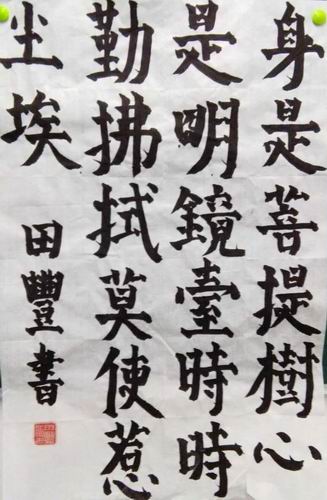 身是菩提樹心
是明鏡臺時時
勤拂拭莫使惹
尘埃
田豐書